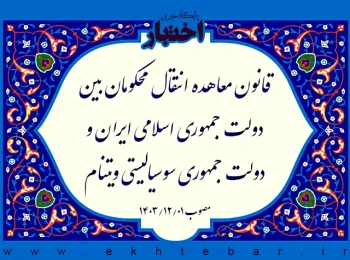 پایگاه خبری
اختبار
قانون معاهده انتقال محکومان بین
دولت جمهوری اسلامی ایران و
دولت جمهوری سوسیالیستی ویتنام
مصوب ۱۴۰۳/۱۲/۰۱
www.ekhtebar.ir